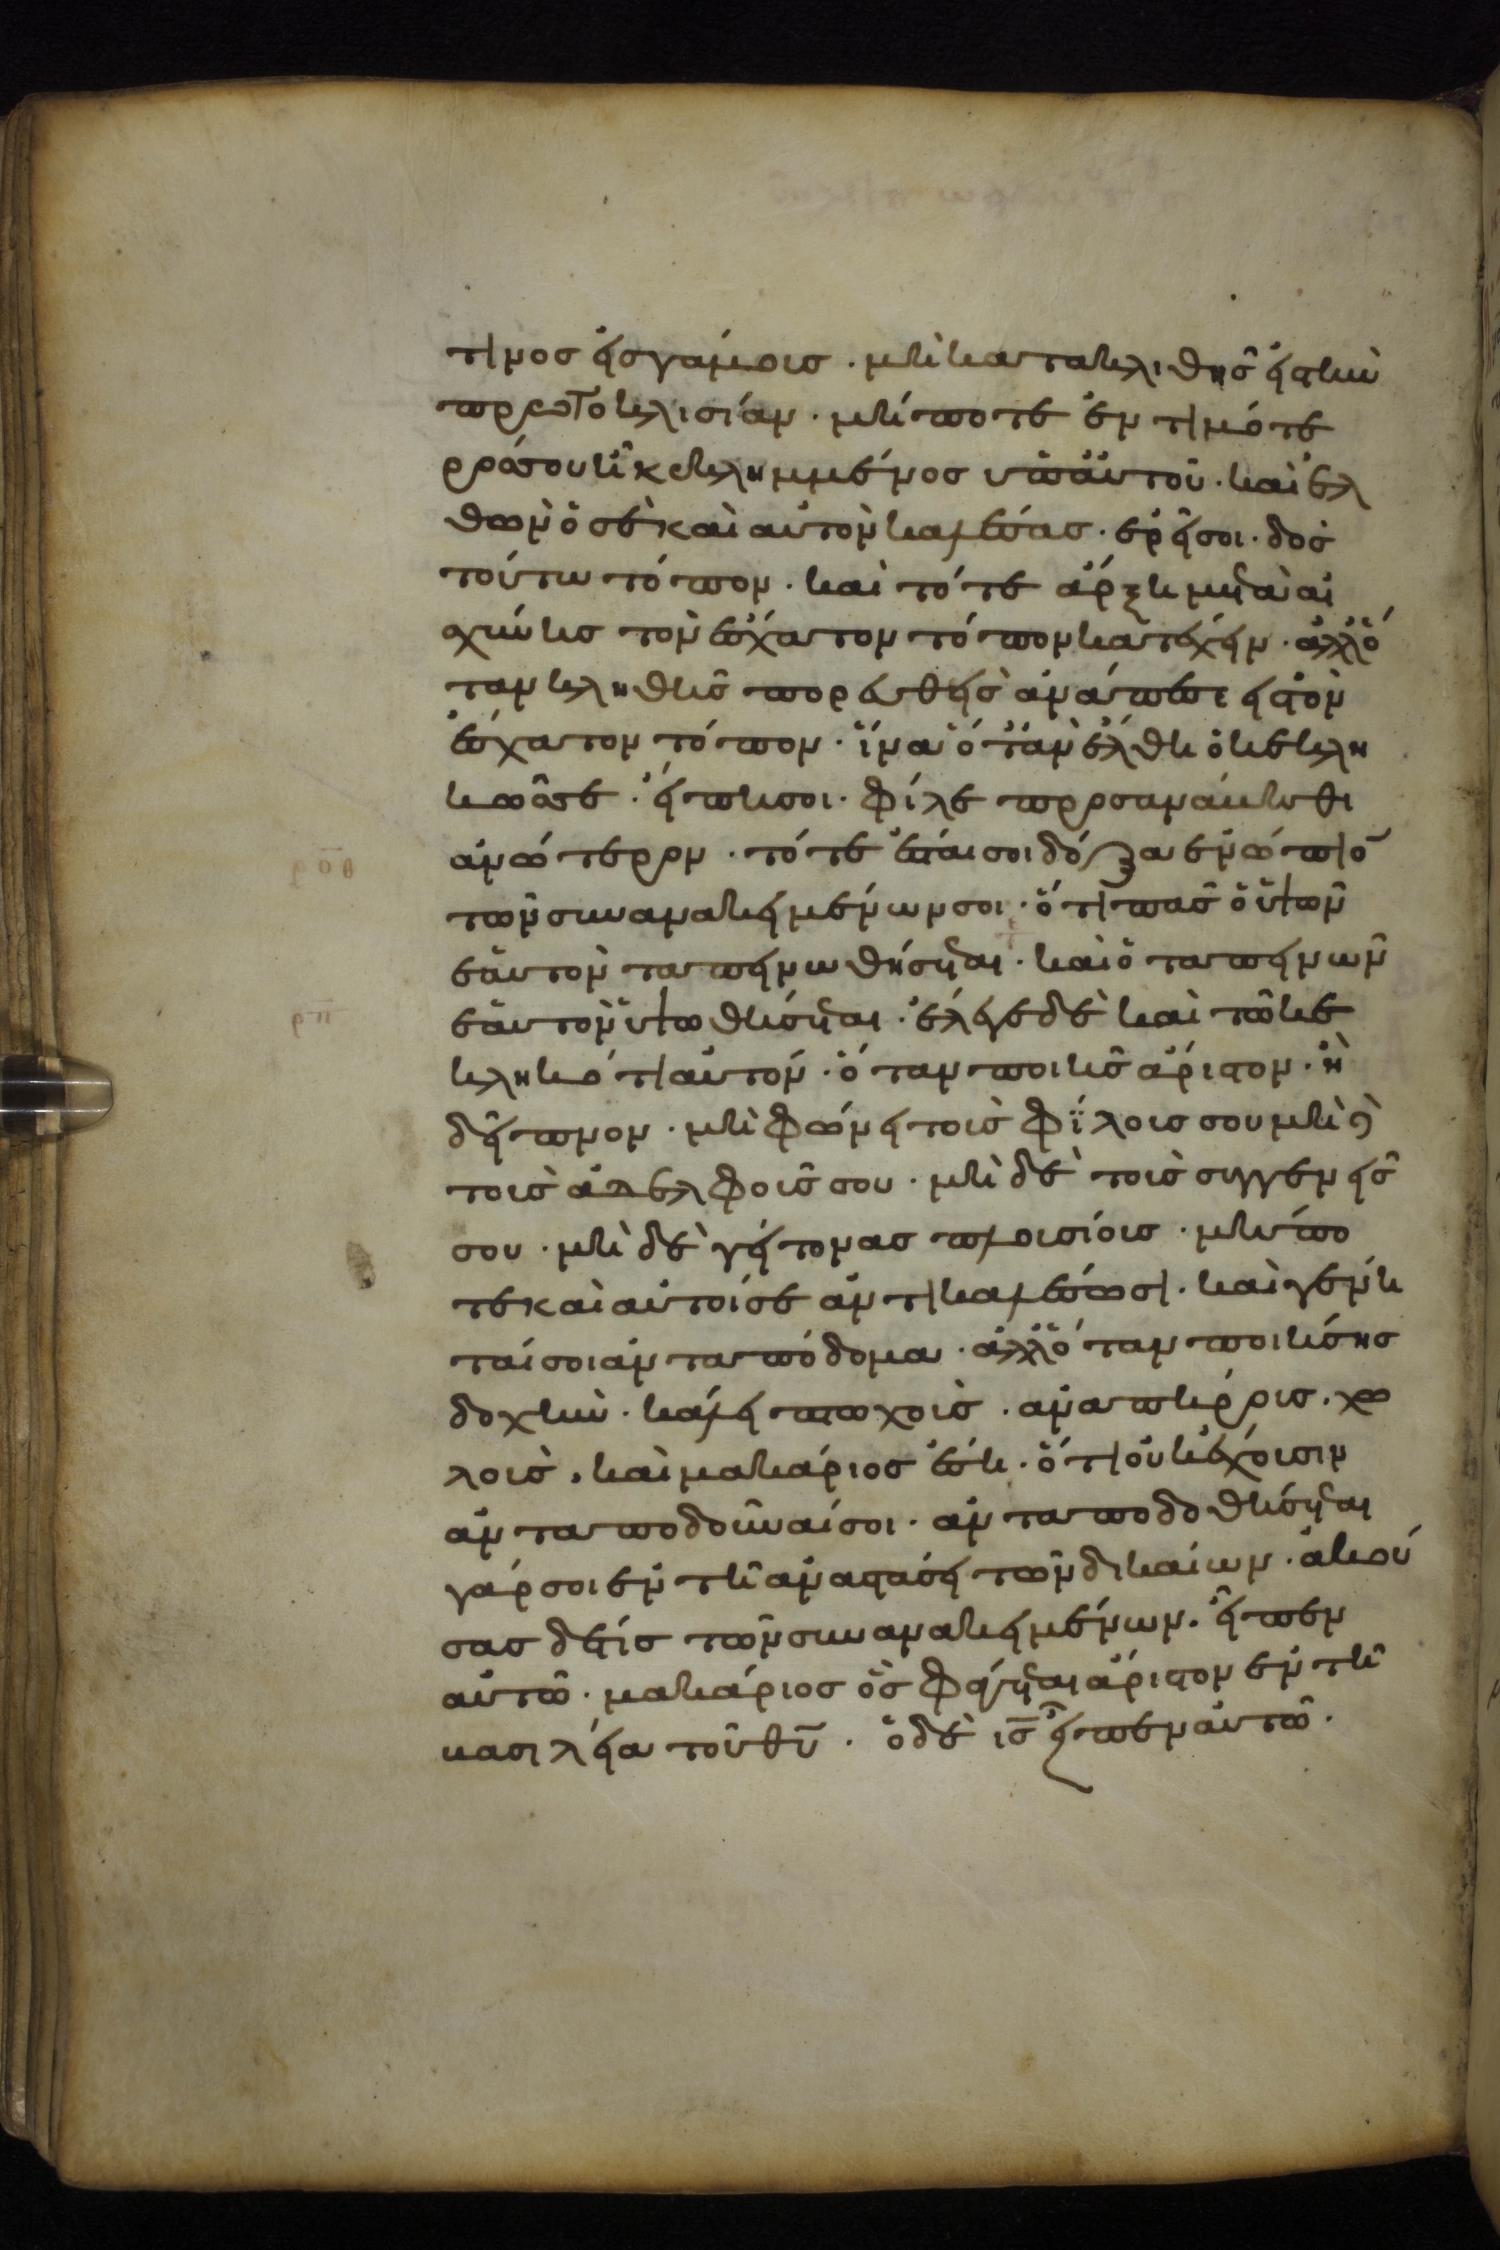 τινος εἰς γάμους · μὴ κατακλιθῆς εἰς τὴν
πρωτοκλισίαν · μήποτε ἐντιμότε
ρός σου ἦ κεκλημμένος ὑπ' αὐτοῦ · καὶ ἐλ
θὼν ὁ σὲ καὶ αὐτὸν καλέσας · ἐρεῖ σοι · δὸς
τούτω τόπον · καὶ τότε ἄρξη μετὰ αἰ
σχύνης τὸν ἔσχατον τόπον κατέχειν · ἀλλ' ὅ
ταν κληθῆς πορευθεὶς ἀνάπεσε εἰς τὸν
ἔσχατον τόπον · ἵνα ὅταν ἔλθη ὁ κεκλη
κώς σε · εἴπη σοι · φίλε προσανάβηθι
ἀνώτερον · τότε ἔσται σοι δόξα ἐνώπιον
τῶν συνανακειμένων σοι · ὅτι πᾶς ὁ ὑψῶν
ἑαυτὸν ταπεινωθήσεται · καὶ ὁ ταπεινῶν
ἑαυτὸν ὑψωθήσεται · ἔλεγε δὲ καὶ τῶ κε
κληκότι αὐτόν · ὅταν ποιῆς ἄριστον · ἢ
δεῖπνον · μὴ φώνει τοὺς φίλους σου μὴ δὲ
τοὺς ἀδελφούς σου · μὴ δὲ τοὺς συγγενεῖς
σου · μὴ δὲ γείτονας πλουσίους · μήπο
τε καὶ αὐτοί σε ἀντικαλέσωσι · καὶ γένη
ταί σοι ἀνταπόδομα · ἀλλ' ὅταν ποιήσης
δοχὴν · κάλει πτωχοὺς · ἀναπήρους · χω
λοὺς · καὶ μακάριος ἔση · ὅτι οὐκ ἔχουσιν
ἀνταποδοῦναί σοι · ἀνταποδοθήσεται
γάρ σοι ἐν τῆ ἀναστάσει τῶν δικαίων · ἀκού
σας δέ τίς τῶν συνανακειμένων · εἶπεν
αὐτῶ · μακάριος ὃς φάγεται ἄριστον ἐν τῆ
βασιλεία τοῦ θυ · ὁ δὲ ις εἶπεν αὐτῶ ·